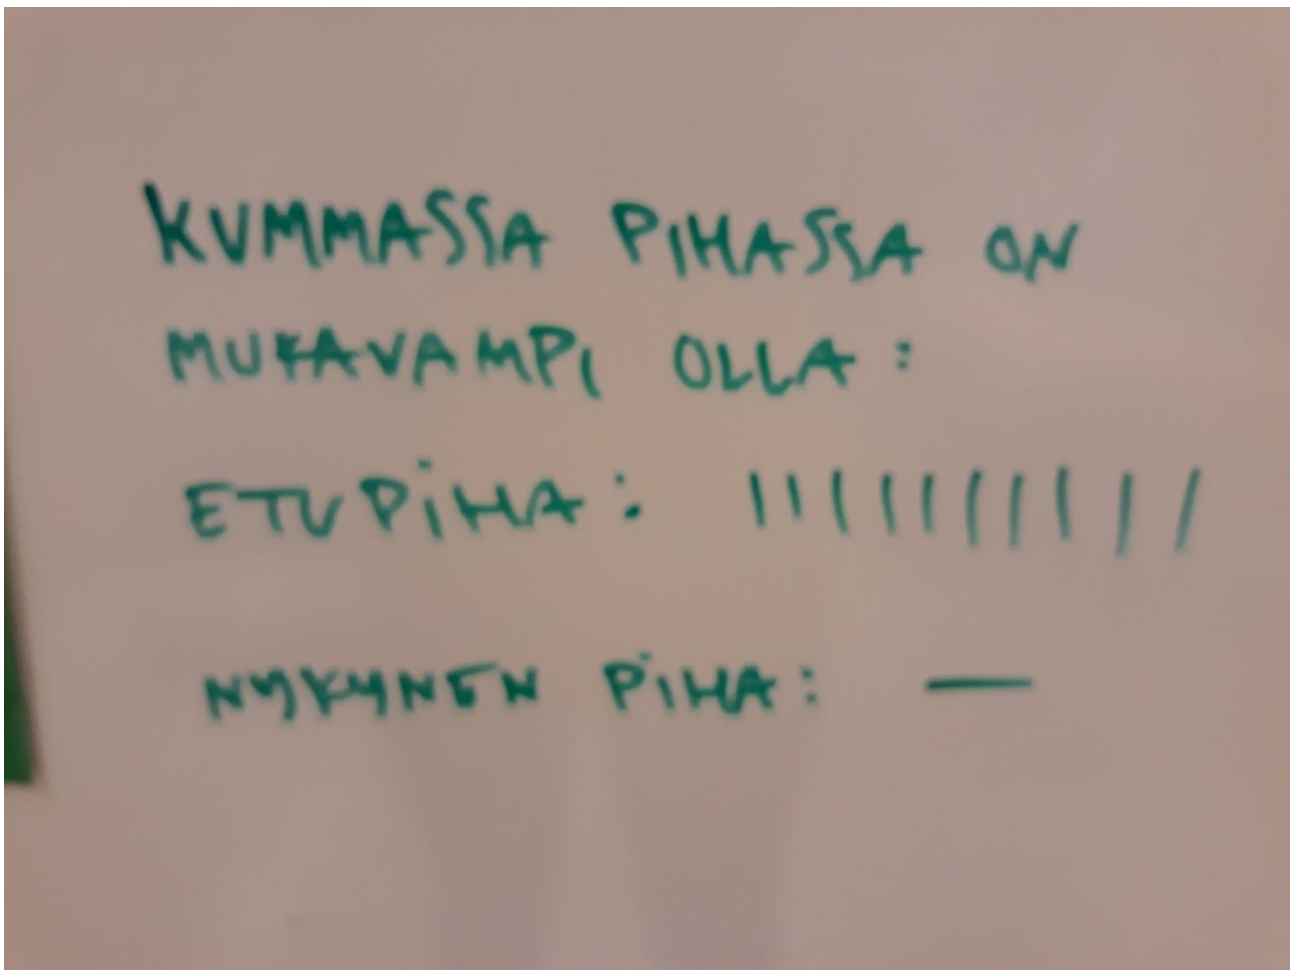 KUMMASSA PIHASSA ON
MUKAVAMPI OLLA:
ETUPIHA: ||||||||||
NYKYNEN PIHA: —